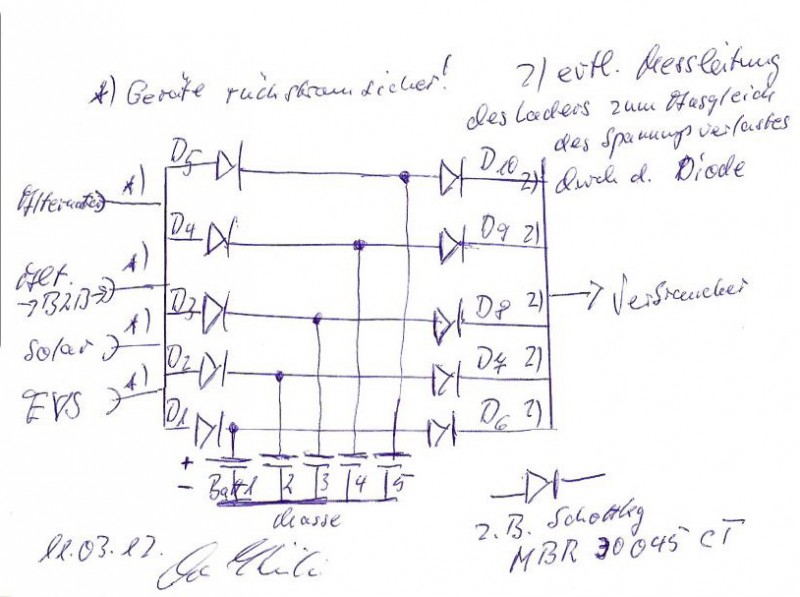 1) Geräte rückstromsicher!
2) evtl. Messleitung
des Laders zum Ausgleich
des Spannungsverlustes
durch d. Diode
D5
D10 2)
Alternator
1)
D4
D9 2)
Alt.
→B2B→
1)
D3
D8 2)
→ Verbraucher
Solar
1)
D2
D7 2)
EVS
1)
D1
D6 2)
+
-
Batt 1 2 3 4 5
Masse
z. B. Schottky
MBR 30045 CT
11.03.12.